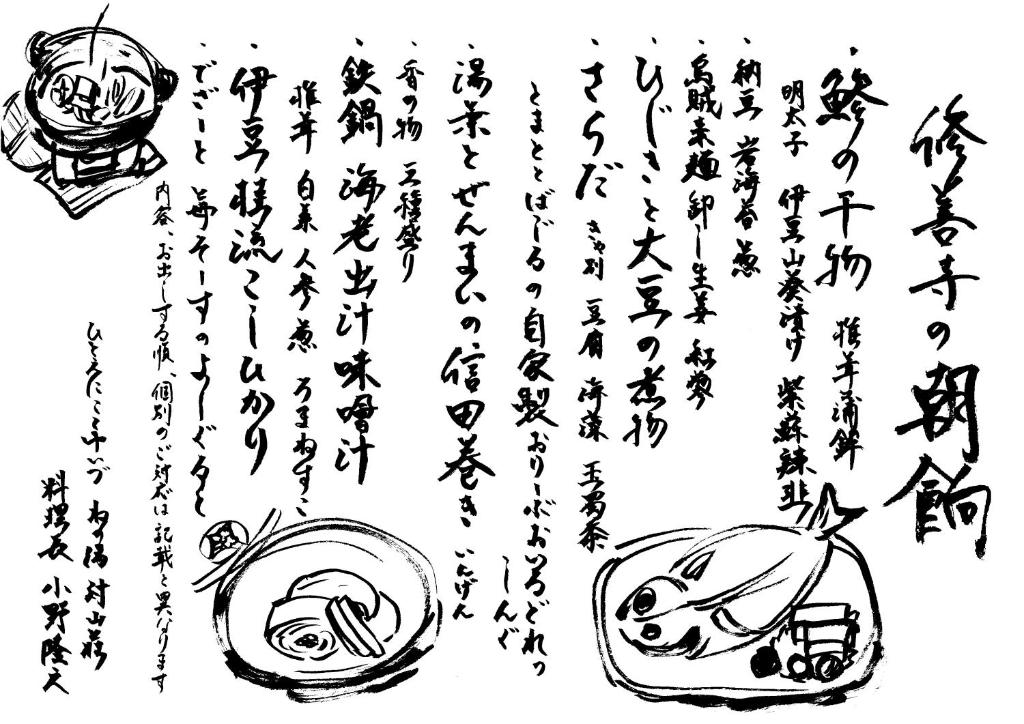 修善寺の朝餉
・鯵の干物 椎茸蒲鉾
明太子 伊豆山葵漬け 紫蘇辣韮
・納豆 岩海苔 葱
・烏賊素麺 卸し生姜 紅蓼
・ひじきと大豆の煮物
・さらだ きゃ別 豆腐 海藻 玉蜀黍
とまととばじるの自家製おりーぶおいるどれっしんぐ
・湯葉とぜんまいの信田巻き いんげん
・香の物 三種盛り
・鉄鍋 海老出汁味噌汁
椎茸 白菜 人参 葱 ろまねすこ
・伊豆 桂流こしひかり
・でざーと 苺そーすのよーぐると
内容、お出しする順、個別のご対応は記載と異なります
ねの湯 対山荘
料理長 小野隆夫